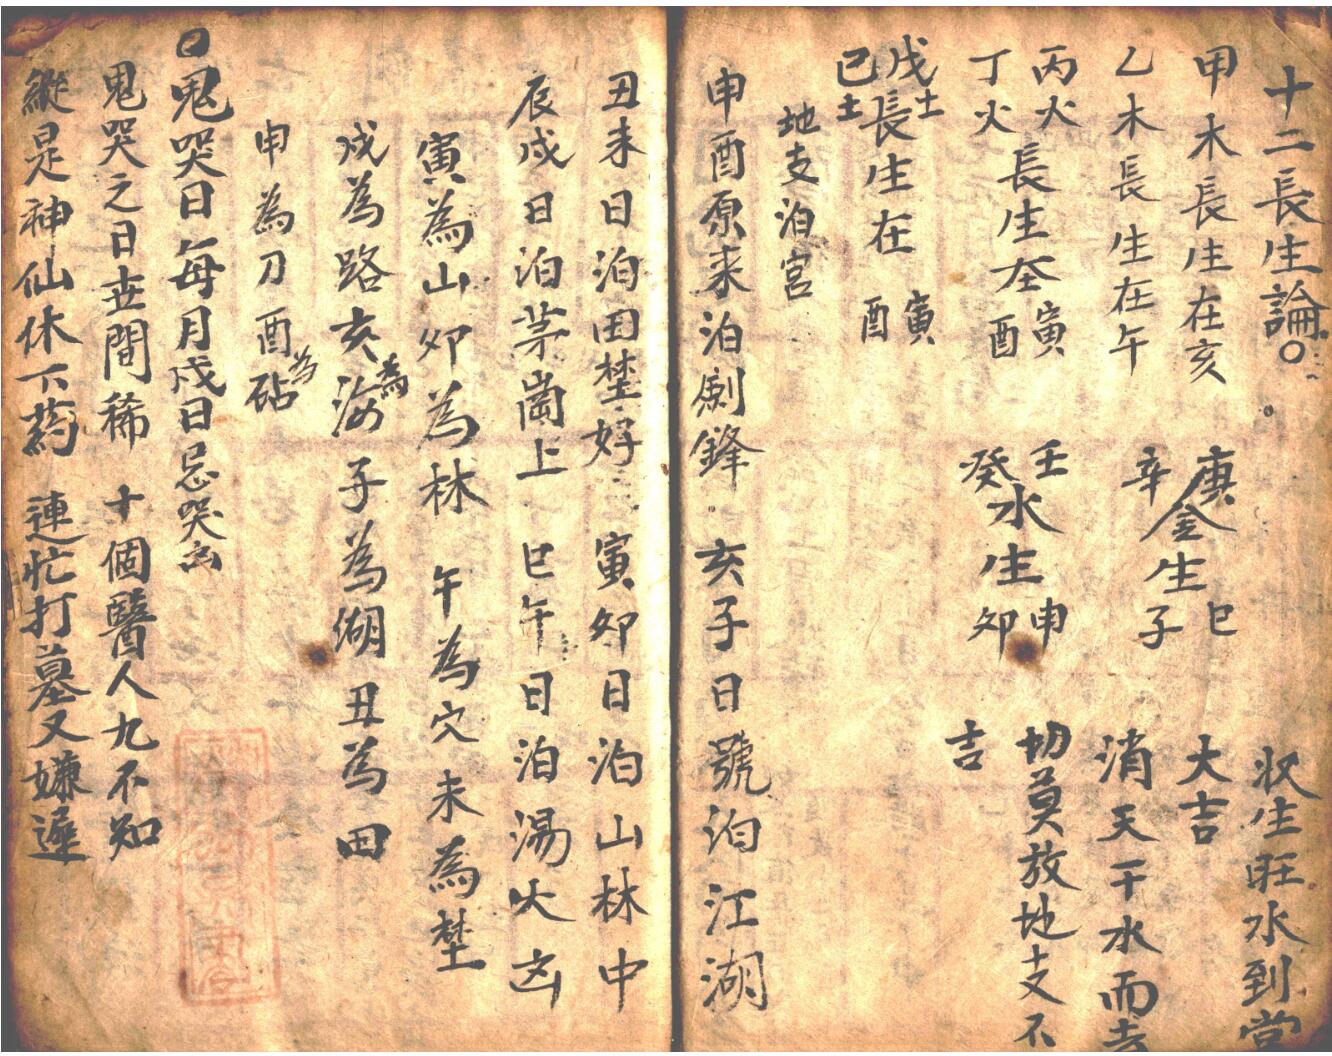 十二長生論
甲木長生在亥
乙木長生在午
丙火丁火長生在寅酉
戊土己土長生在寅酉
庚辛金生巳子
壬癸水生申卯
收生旺水到堂
大吉
消天干水而去
切莫放地支不
吉
地支泊宮
申酉原来泊劍鋒 亥子日號泊江湖
丑未日泊田埜好 寅卯日泊山林中
辰戌日泊茅崗上 巳午日泊湯火凶
寅為山卯為林 午為穴未為埜
戌為路亥為海 子為湖 丑為田
申為刀酉為砧
鬼哭日每月戌日忌哭凶
鬼哭之日世間稀 十個醫人九不知
縱是神仙休下药 連忙打墓又嫌遲